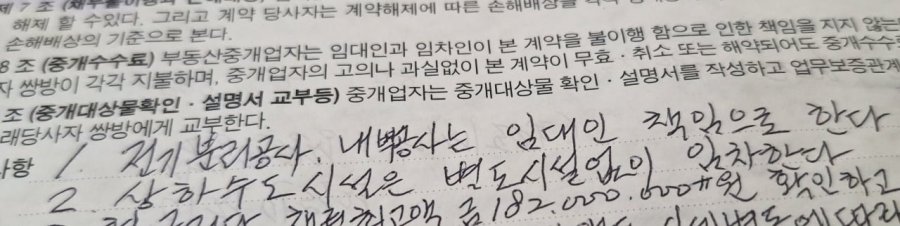 제 7 조
해제 할 수있다. 그리고 계약 당사자는 계약해제에 따른 손해배상을 각각
손해배상의 기준으로 본다.
8 조 (중개수수료) 부동산중개업자는 임대인과 임차인이 본 계약을 불이행 함으로 인한 책임을 지지 않는
자 쌍방이 각각 지불하며, 중개업자의 고의나 과실없이 본 계약이 무효·취소 또는 해약되어도 중개수수
조 (중개대상물확인·설명서 교부등) 중개업자는 중개대상물 확인·설명서를 작성하고 업무보증관계
래당사자 쌍방에게 교부한다.
사항 1. 전기분리공사. 내벽공사는 임대인 책임으로 한다
2. 상하수도시설은 별도시설없이 임차한다
채권최고액 금182.000.000#원 확인하고